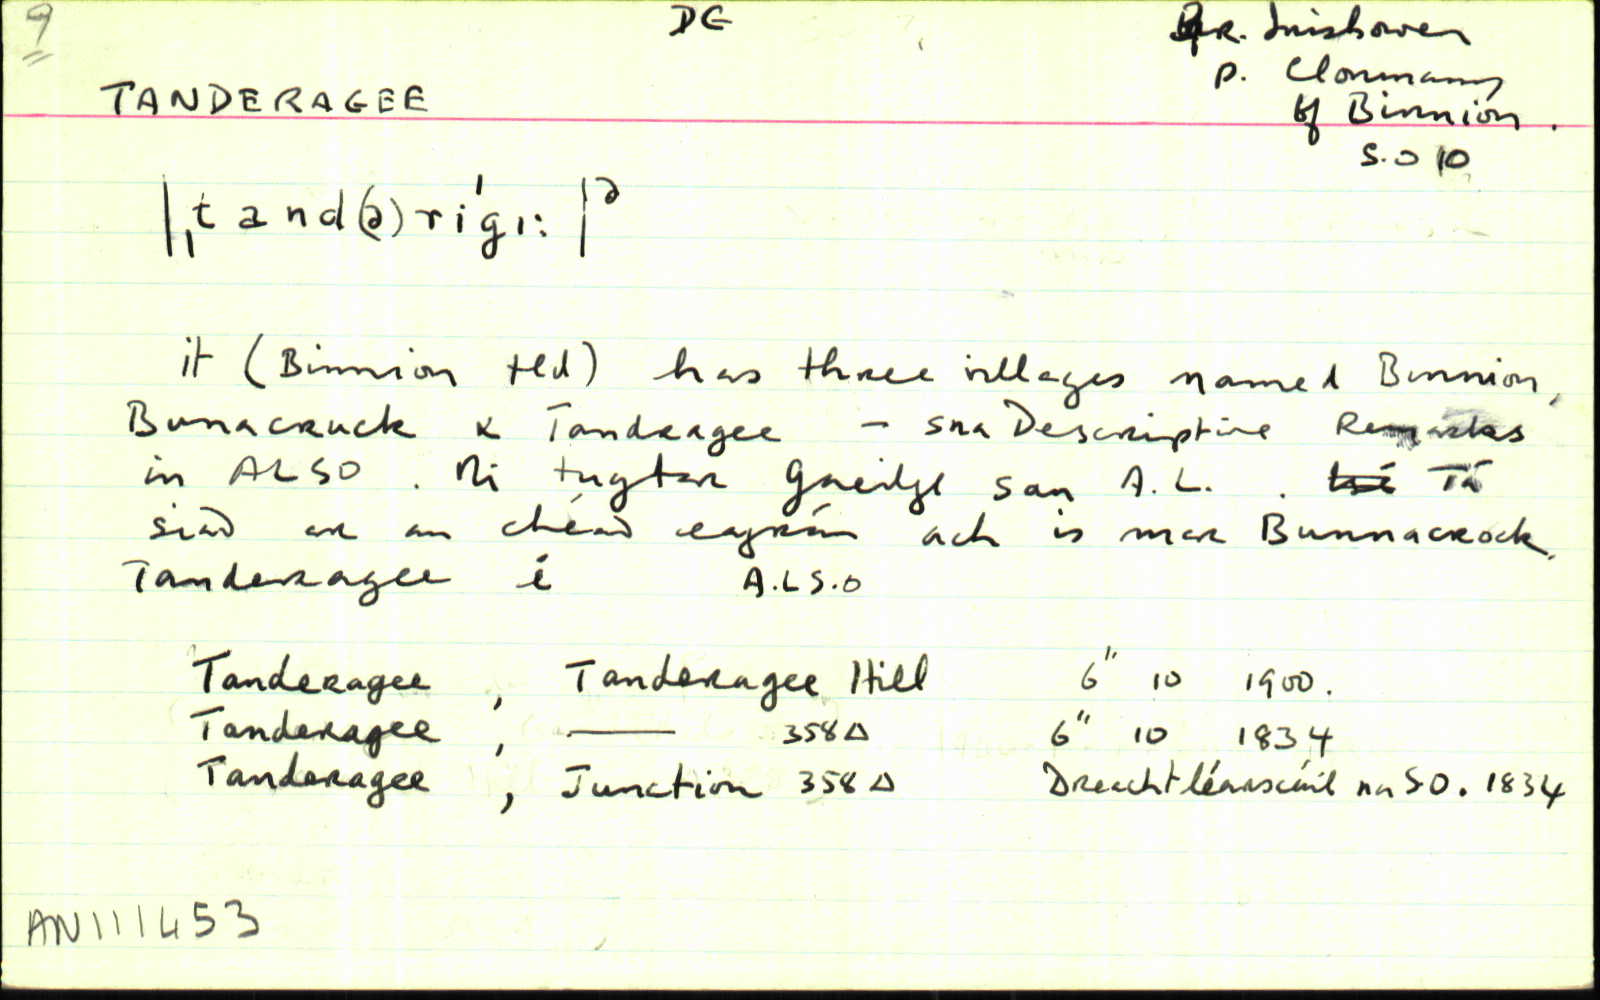 9
DG
Bar. Inishowen
p. Clonmany
bf Binnion.
S.O 10
TANDERAGEE
|ˌtand(ə)riˈgi:|ə
it (Binnion tld) has three villages named Binnion,
Bunacruck & Tandragee – sna Descriptive Remarks
in ALSO. Ní tugtar Gaeilge san A.L. . Tá
siad ar an chéad eagrán ach is mar Bunnacrock,
Tanderagee é A.L S.O
Tanderagee , Tanderagee Hill 6" 10 1900.
Tanderagee , —— 358 Δ 6" 10 1834
Tanderagee , Junction 358 Δ Dreachtléarscáil na SO. 1834
AN111453